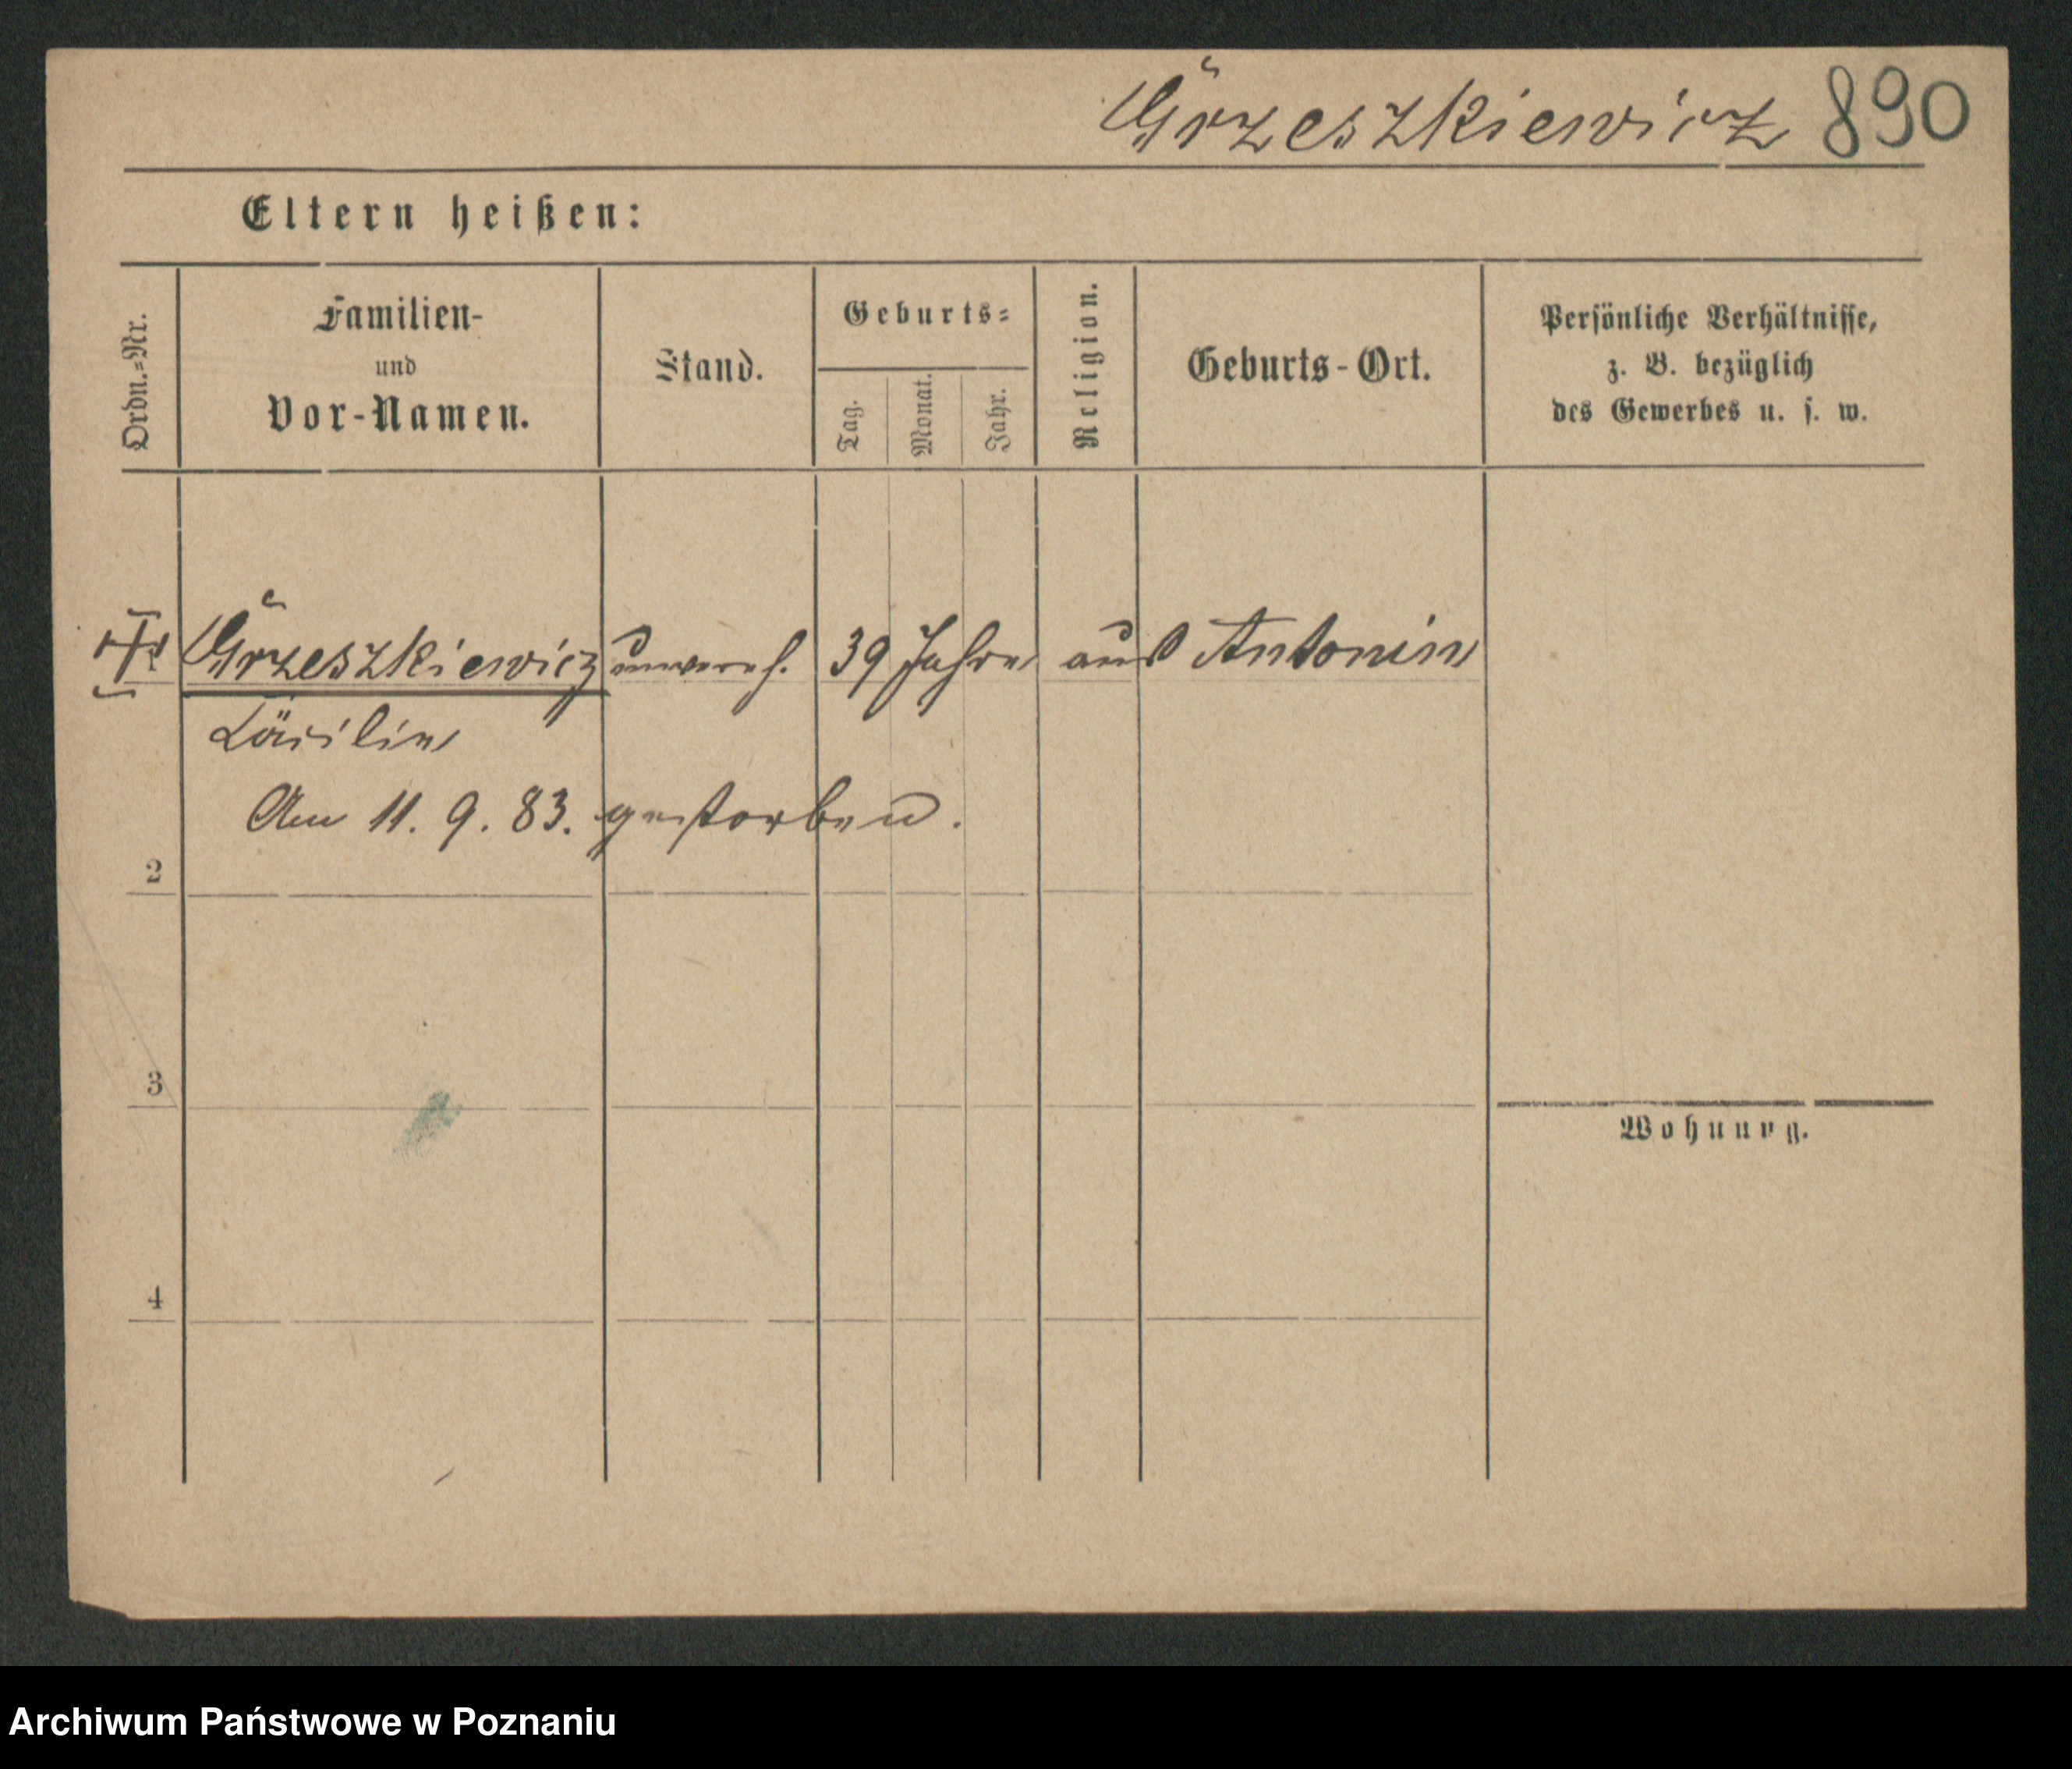 Grzeszkiewicz 890
Eltern heißen:
Ordn.=Nr.
Familien-
und
Vor-Namen.
Stand.
Geburts=
Tag.
Monat.
Jahr.
Religion.
Geburts-Ort.
Persönliche Verhältnisse,
z. B. bezüglich
des Gewerbes u. s. w.
Grzeszkiewicz unvereh. 39 Jahre aus Antonin
Cäcilie
Am 11. 9. 83. gestorben.
2
3
Wohnung.
4
Archiwum Państwowe w Poznaniu